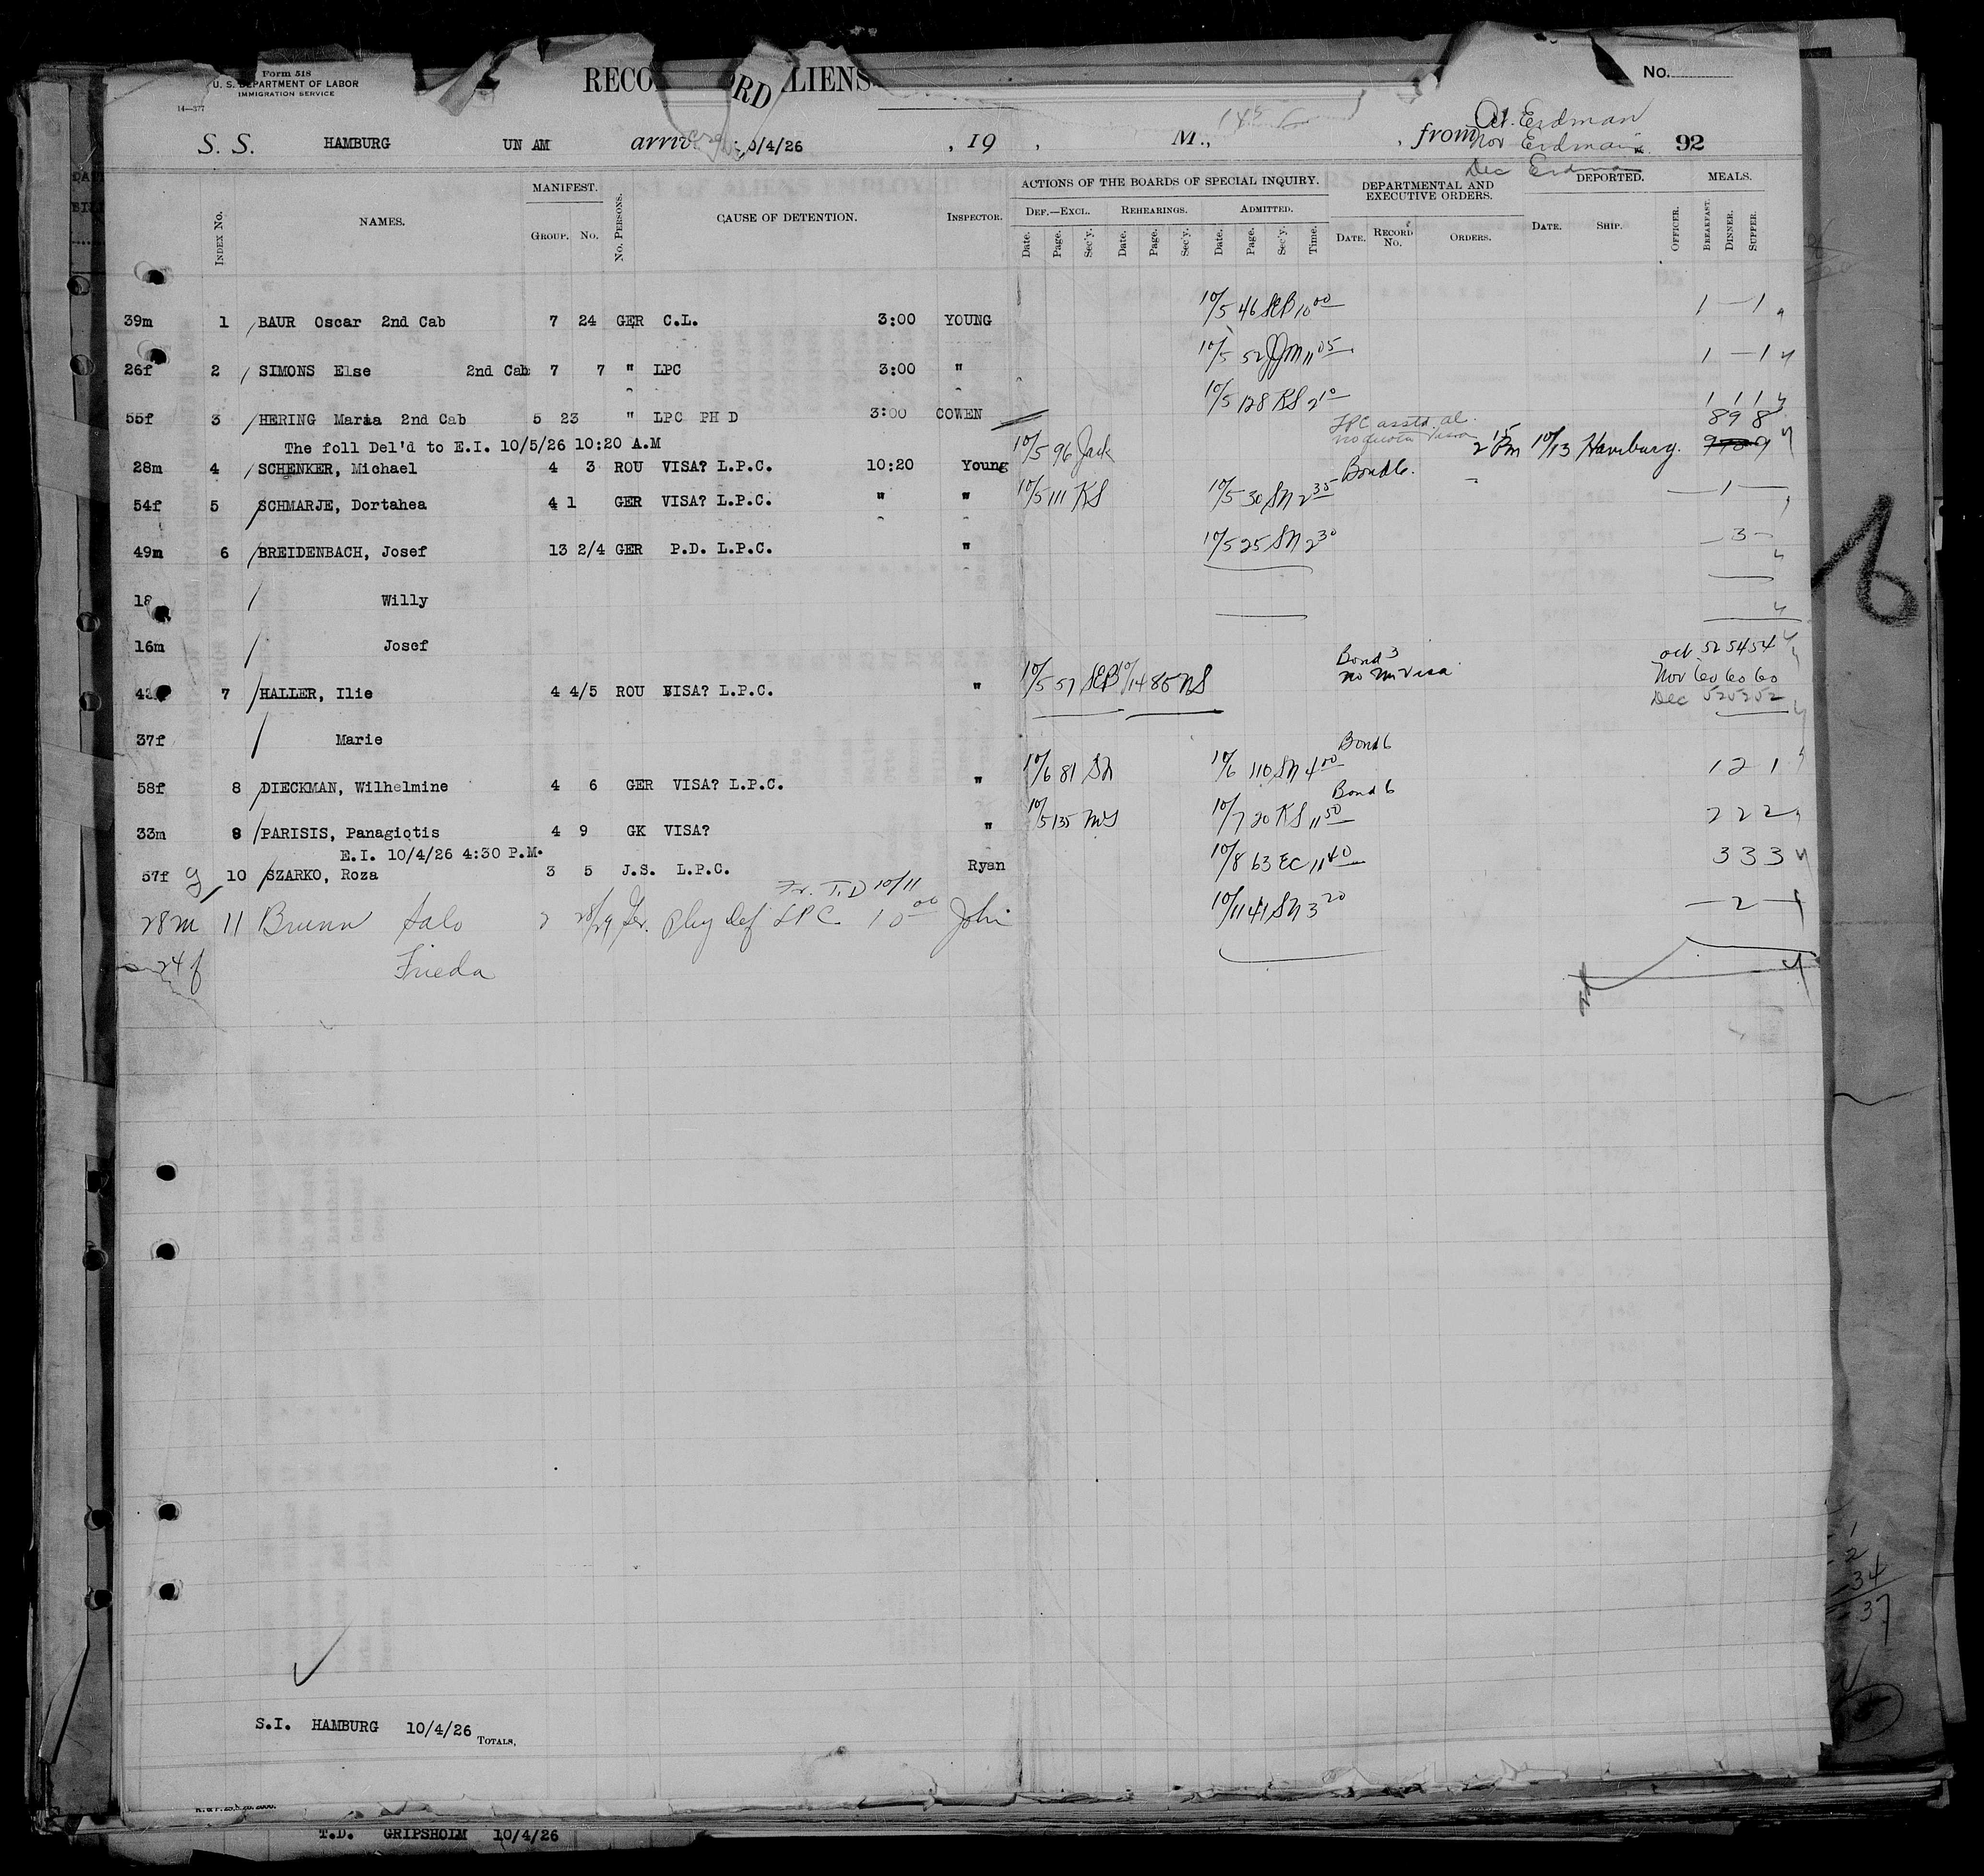 Form 518
U. S. DEPARTMENT OF LABOR
IMMIGRATION SERVICE
14—377
RECORD ALIENS
No.
S. S. HAMBURG UN AM arriv 0/4/26 , 19 , M., , from 92
Oct. Erdman
Nov Erdman
Dec Erdman
Index No. NAMES. MANIFEST. Group. No. No. Persons. CAUSE OF DETENTION. Inspector.
ACTIONS OF THE BOARDS OF SPECIAL INQUIRY. DEPARTMENTAL AND EXECUTIVE ORDERS. DEPORTED. MEALS.
Def.—Excl. Rehearings. Admitted.
Date. Page. Sec'y. Date. Page. Sec'y. Date. Page. Sec'y. Time. Date. Record No. Orders. Date. Ship. Officer. Breakfast. Dinner. Supper.
39m 1 / BAUR Oscar 2nd Cab 7 24 GER C.L. 3:00 YOUNG 10/5 46 SEB 10 00 1 — 1
26f 2 / SIMONS Else 2nd Cab 7 7 " LPC 3:00 " 10/5 52 JJM 11 05 1 — 1
55f 3 / HERING Maria 2nd Cab 5 23 " LPC PH D 3:00 COWEN 10/5 128 KS 2 10 1 1 1
The foll Del'd to E.I. 10/5/26 10:20 A.M
LPC asstd. al.
no quota visa
8 9 8
28m 4 / SCHENKER, Michael 4 3 ROU VISA? L.P.C. 10:20 Young 10/5 96 Jack 2 15 Pm 10/13 Hamburg.
54f 5 / SCHMARJE, Dortahea 4 1 GER VISA? L.P.C. " " 10/5 111 KS 10/5 30 SN 2 35 Bond 6. — 1 —
49m 6 / BREIDENBACH, Josef 13 2/4 GER P.D. L.P.C. " 10/5 25 SN 2 30 — 3 —
18 / Willy
16m / Josef
Oct 52 54 54
Nov 60 60 60
Dec 52 52 52
7 / HALLER, Ilie 4 4/5 ROU VISA? L.P.C. " 10/5 57 SEB 10/14 85 NS Bond 3 no Visa
37f / Marie
58f 8 / DIECKMAN, Wilhelmine 4 6 GER VISA? L.P.C. " 10/6 81 SN 10/6 110 SN 4 00 Bond 6 1 2 1
33m 8 / PARISIS, Panagiotis 4 9 GK VISA? " 10/5 135 10/7 20 KS 11 50 Bond 6 2 2 2
E.I. 10/4/26 4:30 P.M.
57f 10 / SZARKO, Roza 3 5 J.S. L.P.C. Ryan 10/8 63 EC 11 40 3 3 3
Fr. T.D 10/11
28m 11 Brunn Salo 2 28/29 Ger. phy def LPC 10 00 John 10/11 41 SN 3 20 — 2 —
24f Frieda
6
1
2
34
37
S.I. HAMBURG 10/4/26
Totals,
T.D. GRIPSHOLM 10/4/26